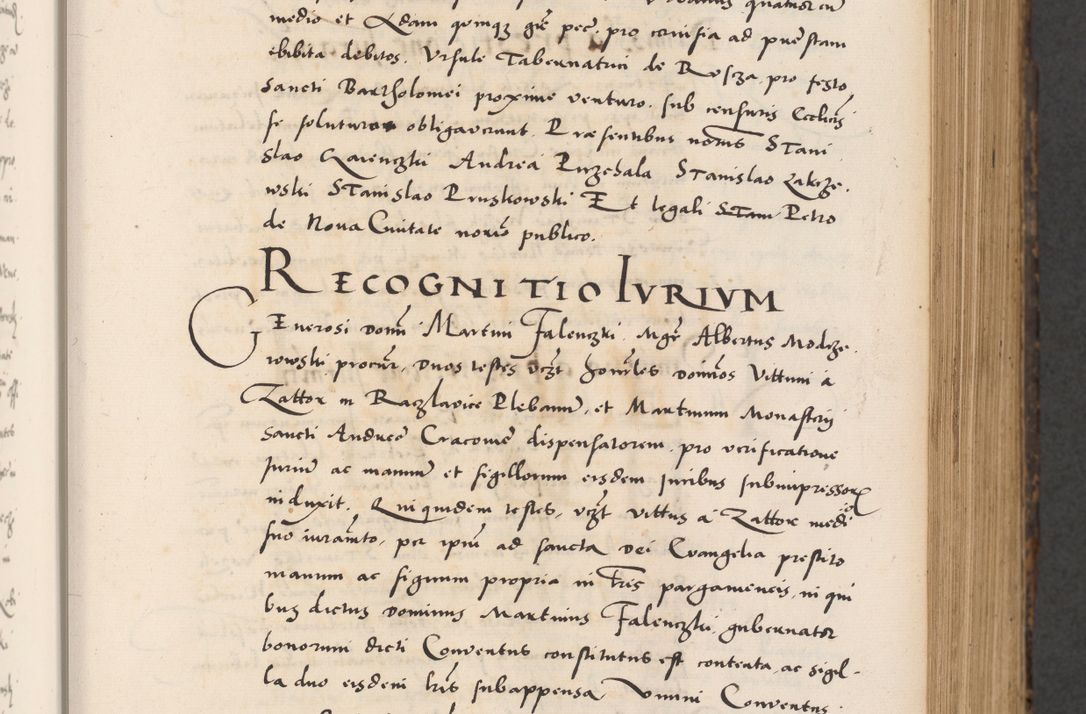 medio et Quadam quinque grē pec. pro cerevisia ad praestam
ebibita debitos. Ursule Tabernatrici de Rosza pro festo
Sancti Bartholomei proxime venturo. sub censuris Ecclicis
se soluturos obligaverunt. Praesentibus notis STani
slao Andrea Stanislao Zakrze.
wski STanislao Pruskowski Et legali Petro
de Nova Civitate norio publico.
RECOGNITIO IVRIVM
GEnerosi domi Martini Falenczki Mgr Albertus Modrze.
rowski procur, duos testes vczt honales dominos Vittum a
Zattor in Raczlavice Plebanum, et Martinum Monasterij
Sancti Andree Cracovie dispensatorem, pro verificatione
Jurium ac manum et sigillorum eisdem Juribus subimpressor
induxit. Qui quidem testes, vczt vittus a Zattor medio
suo iuramto, per ipsum ad sancta Dei Evangelia prestito
manum ac signum propria in lris pargameneis, in qui
bus dictus dominus Martinus Falenczki, gubernator
bonorum dicti Conventus constitutus est contenta, ac sigil-
la duo eisdem lris subappensa Unum Conventus.